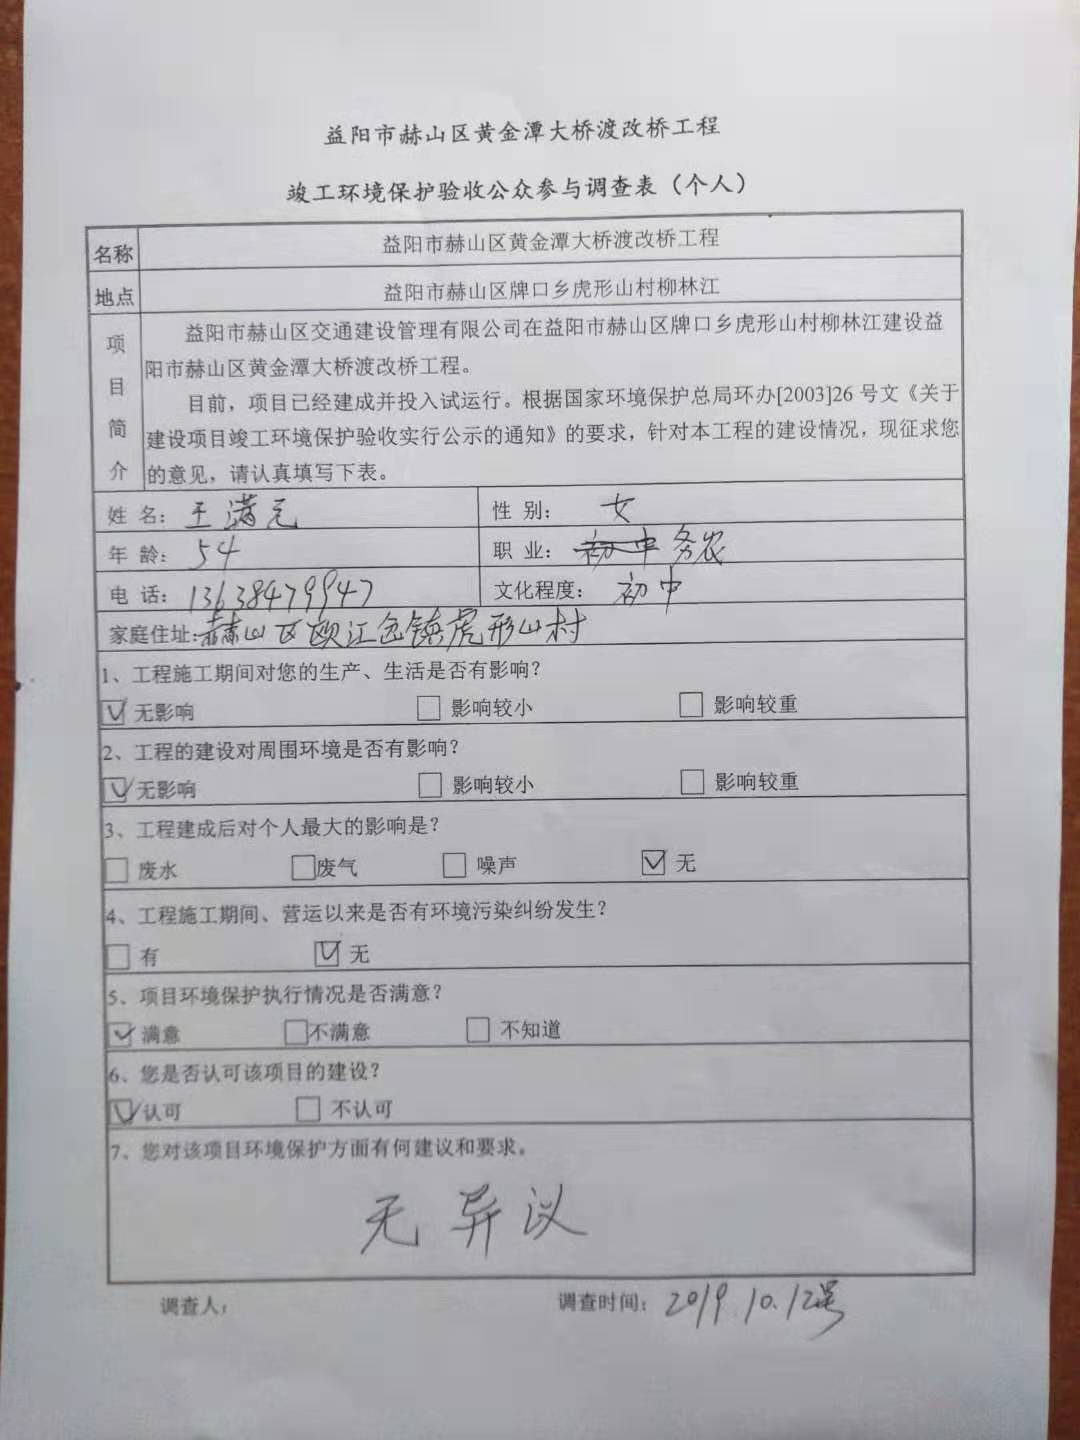 益阳市赫山区黄金潭大桥渡改桥工程
竣工环境保护验收公众参与调查表（个人）
名称 益阳市赫山区黄金潭大桥渡改桥工程
地点 益阳市赫山区牌口乡虎形山村柳林江
项目简介
益阳市赫山区交通建设管理有限公司在益阳市赫山区牌口乡虎形山村柳林江建设益
阳市赫山区黄金潭大桥渡改桥工程。
目前，项目已经建成并投入试运行。根据国家环境保护总局环办[2003]26 号文《关于
建设项目竣工环境保护验收实行公示的通知》的要求，针对本工程的建设情况，现征求您
的意见，请认真填写下表。
姓 名：王满元 性 别：女
年 龄：54 职 业：初中 务农
电 话：13638479947 文化程度：初中
家庭住址：赫山区欧江岔镇虎形山村
1、工程施工期间对您的生产、生活是否有影响？
☑ 无影响 □ 影响较小 □ 影响较重
2、工程的建设对周围环境是否有影响？
☑ 无影响 □ 影响较小 □ 影响较重
3、工程建成后对个人最大的影响是？
□ 废水 □ 废气 □ 噪声 ☑ 无
4、工程施工期间、营运以来是否有环境污染纠纷发生？
□ 有 ☑ 无
5、项目环境保护执行情况是否满意？
☑ 满意 □ 不满意 □ 不知道
6、您是否认可该项目的建设？
☑ 认可 □ 不认可
7、您对该项目环境保护方面有何建议和要求。
无异议
调查人： 调查时间：2019.10.12号